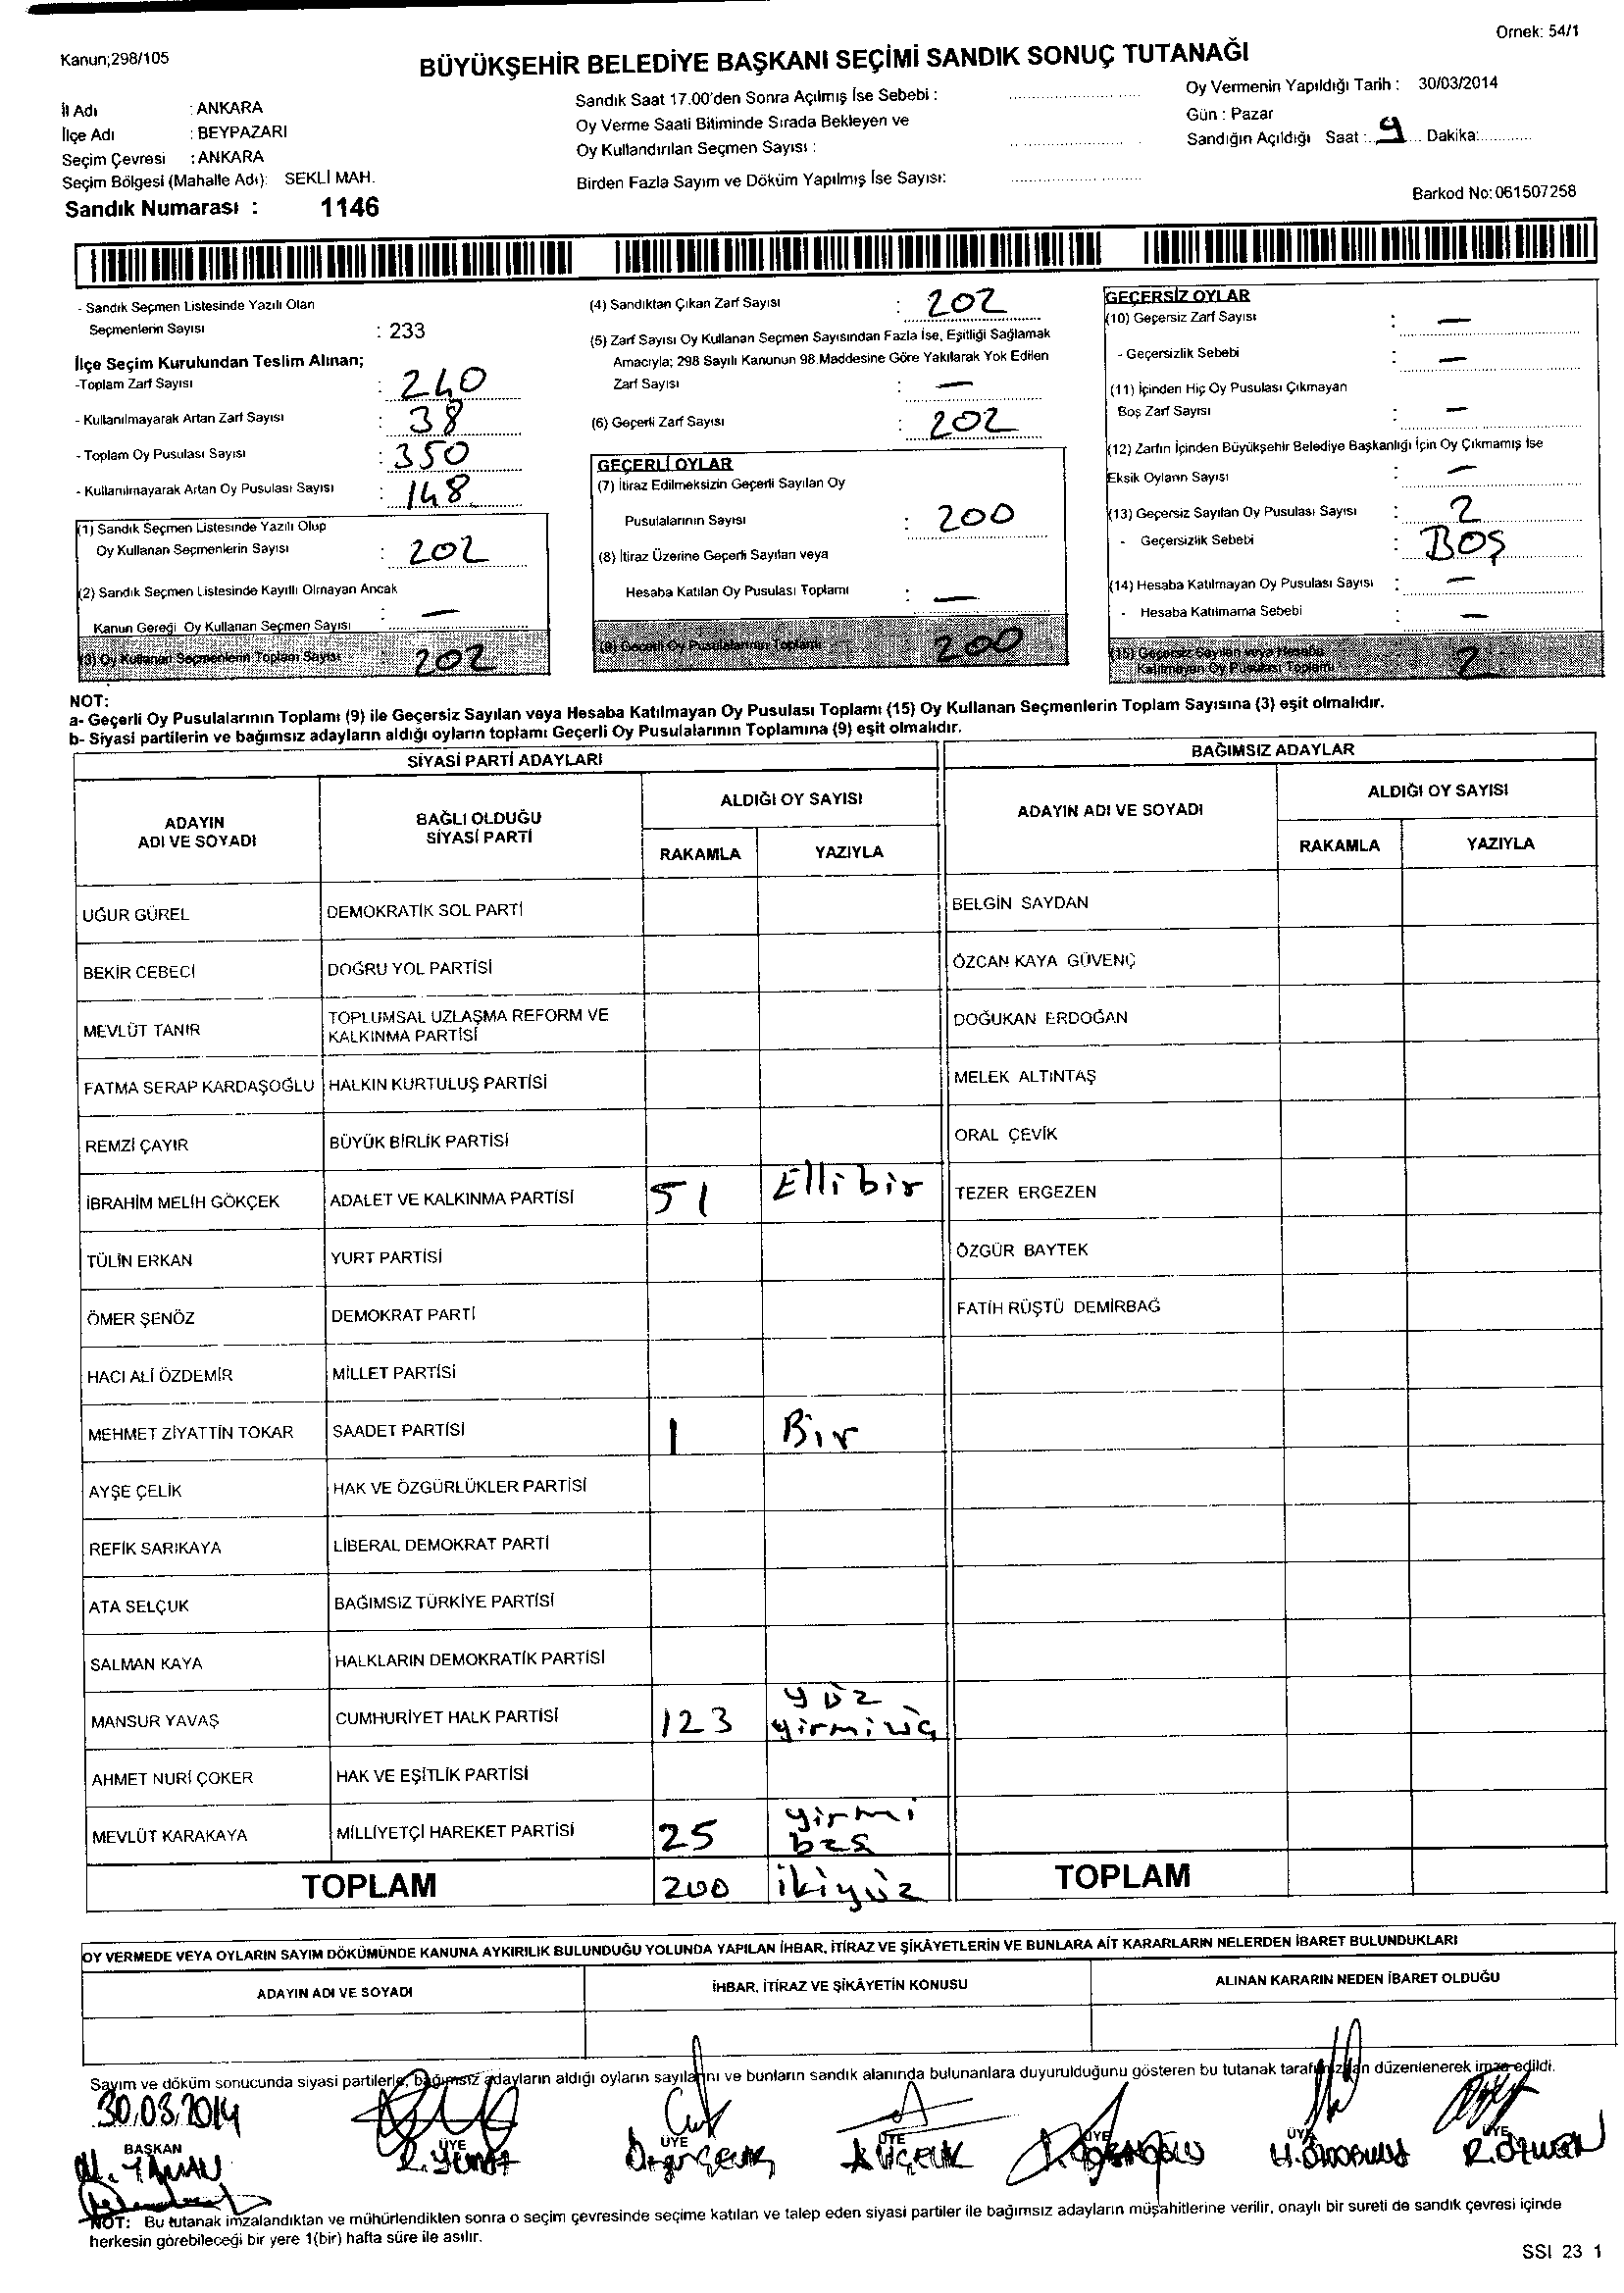 Ornek: 54/1
Kanun;298/105
BÜYÜKŞEHİR BELEDİYE BAŞKANI SEÇİMİ SANDIK SONUÇ TUTANAĞI
İl Adı : ANKARA
İlçe Adı : BEYPAZARI
Seçim Çevresi : ANKARA
Seçim Bölgesi (Mahalle Adı): SEKLİ MAH.
Sandık Numarası : 1146
Sandık Saat 17.00'den Sonra Açılmış İse Sebebi :
Oy Verme Saati Bitiminde Sırada Bekleyen ve
Oy Kullandırılan Seçmen Sayısı :
Birden Fazla Sayım ve Döküm Yapılmış İse Sayısı:
Oy Vermenin Yapıldığı Tarih : 30/03/2014
Gün : Pazar
Sandığın Açıldığı Saat : 9 Dakika:
Barkod No: 061507258
- Sandık Seçmen Listesinde Yazılı Olan
Seçmenlerin Sayısı : 233
İlçe Seçim Kurulundan Teslim Alınan;
-Toplam Zarf Sayısı : 240
- Kullanılmayarak Artan Zarf Sayısı : 38
- Toplam Oy Pusulası Sayısı : 350
- Kullanılmayarak Artan Oy Pusulası Sayısı : 148
(1) Sandık Seçmen Listesinde Yazılı Olup
Oy Kullanan Seçmenlerin Sayısı : 202
(2) Sandık Seçmen Listesinde Kayıtlı Olmayan Ancak
Kanun Gereği Oy Kullanan Seçmen Sayısı : —
(3) Oy Kullanan Seçmenlerin Toplam Sayısı : 202
(4) Sandıktan Çıkan Zarf Sayısı : 202
(5) Zarf Sayısı Oy Kullanan Seçmen Sayısından Fazla İse, Eşitliği Sağlamak
Amacıyla; 298 Sayılı Kanunun 98.Maddesine Göre Yakılarak Yok Edilen
Zarf Sayısı : —
(6) Geçerli Zarf Sayısı : 202
GEÇERLİ OYLAR
(7) İtiraz Edilmeksizin Geçerli Sayılan Oy
Pusulalarının Sayısı : 200
(8) İtiraz Üzerine Geçerli Sayılan veya
Hesaba Katılan Oy Pusulası Toplamı : —
(9) Geçerli Oy Pusulalarının Toplamı : 200
GEÇERSİZ OYLAR
(10) Geçersiz Zarf Sayısı : —
- Geçersizlik Sebebi : —
(11) İçinden Hiç Oy Pusulası Çıkmayan
Boş Zarf Sayısı : —
(12) Zarfın İçinden Büyükşehir Belediye Başkanlığı İçin Oy Çıkmamış İse
Eksik Oyların Sayısı : —
(13) Geçersiz Sayılan Oy Pusulası Sayısı : 2
- Geçersizlik Sebebi : BOŞ
(14) Hesaba Katılmayan Oy Pusulası Sayısı : —
- Hesaba Katılmama Sebebi : —
(15) Geçersiz Sayılan veya Hesaba
Katılmayan Oy Pusulası Toplamı : 2
NOT:
a- Geçerli Oy Pusulalarının Toplamı (9) ile Geçersiz Sayılan veya Hesaba Katılmayan Oy Pusulası Toplamı (15) Oy Kullanan Seçmenlerin Toplam Sayısına (3) eşit olmalıdır.
b- Siyasi partilerin ve bağımsız adayların aldığı oyların toplamı Geçerli Oy Pusulalarının Toplamına (9) eşit olmalıdır.
SİYASİ PARTİ ADAYLARI BAĞIMSIZ ADAYLAR
ADAYIN ADI VE SOYADI BAĞLI OLDUĞU SİYASİ PARTİ ALDIĞI OY SAYISI ADAYIN ADI VE SOYADI ALDIĞI OY SAYISI
RAKAMLA YAZIYLA RAKAMLA YAZIYLA
UĞUR GÜREL DEMOKRATİK SOL PARTİ BELGİN SAYDAN
BEKİR CEBECİ DOĞRU YOL PARTİSİ ÖZCAN KAYA GÜVENÇ
MEVLÜT TANIR TOPLUMSAL UZLAŞMA REFORM VE KALKINMA PARTİSİ DOĞUKAN ERDOĞAN
FATMA SERAP KARDAŞOĞLU HALKIN KURTULUŞ PARTİSİ MELEK ALTINTAŞ
REMZİ ÇAYIR BÜYÜK BİRLİK PARTİSİ ORAL ÇEVİK
İBRAHİM MELİH GÖKÇEK ADALET VE KALKINMA PARTİSİ 51 Ellibir TEZER ERGEZEN
TÜLİN ERKAN YURT PARTİSİ ÖZGÜR BAYTEK
ÖMER ŞENÖZ DEMOKRAT PARTİ FATİH RÜŞTÜ DEMİRBAĞ
HACI ALİ ÖZDEMİR MİLLET PARTİSİ
MEHMET ZİYATTİN TOKAR SAADET PARTİSİ 1 Bir
AYŞE ÇELİK HAK VE ÖZGÜRLÜKLER PARTİSİ
REFİK SARIKAYA LİBERAL DEMOKRAT PARTİ
ATA SELÇUK BAĞIMSIZ TÜRKİYE PARTİSİ
SALMAN KAYA HALKLARIN DEMOKRATİK PARTİSİ
MANSUR YAVAŞ CUMHURİYET HALK PARTİSİ 123 yüz yirmiüç
AHMET NURİ ÇOKER HAK VE EŞİTLİK PARTİSİ
MEVLÜT KARAKAYA MİLLİYETÇİ HAREKET PARTİSİ 25 yirmi beş
TOPLAM 200 ikiyüz TOPLAM
OY VERMEDE VEYA OYLARIN SAYIM DÖKÜMÜNDE KANUNA AYKIRILIK BULUNDUĞU YOLUNDA YAPILAN İHBAR, İTİRAZ VE ŞİKÂYETLERİN VE BUNLARA AİT KARARLARIN NELERDEN İBARET BULUNDUKLARI
ADAYIN ADI VE SOYADI İHBAR, İTİRAZ VE ŞİKÂYETİN KONUSU ALINAN KARARIN NEDEN İBARET OLDUĞU
Sayım ve döküm sonucunda siyasi partilerle, bağımsız adayların aldığı oyların sayılarını ve bunların sandık alanında bulunanlara duyurulduğunu gösteren bu tutanak tarafımızdan düzenlenerek imza edildi.
30.03.2014
BAŞKAN ÜYE ÜYE ÜYE ÜYE ÜYE ÜYE
NOT: Bu tutanak imzalandıktan ve mühürlendikten sonra o seçim çevresinde seçime katılan ve talep eden siyasi partiler ile bağımsız adayların müşahitlerine verilir, onaylı bir sureti de sandık çevresi içinde
herkesin görebileceği bir yere 1(bir) hafta süre ile asılır.
SSI 23 1